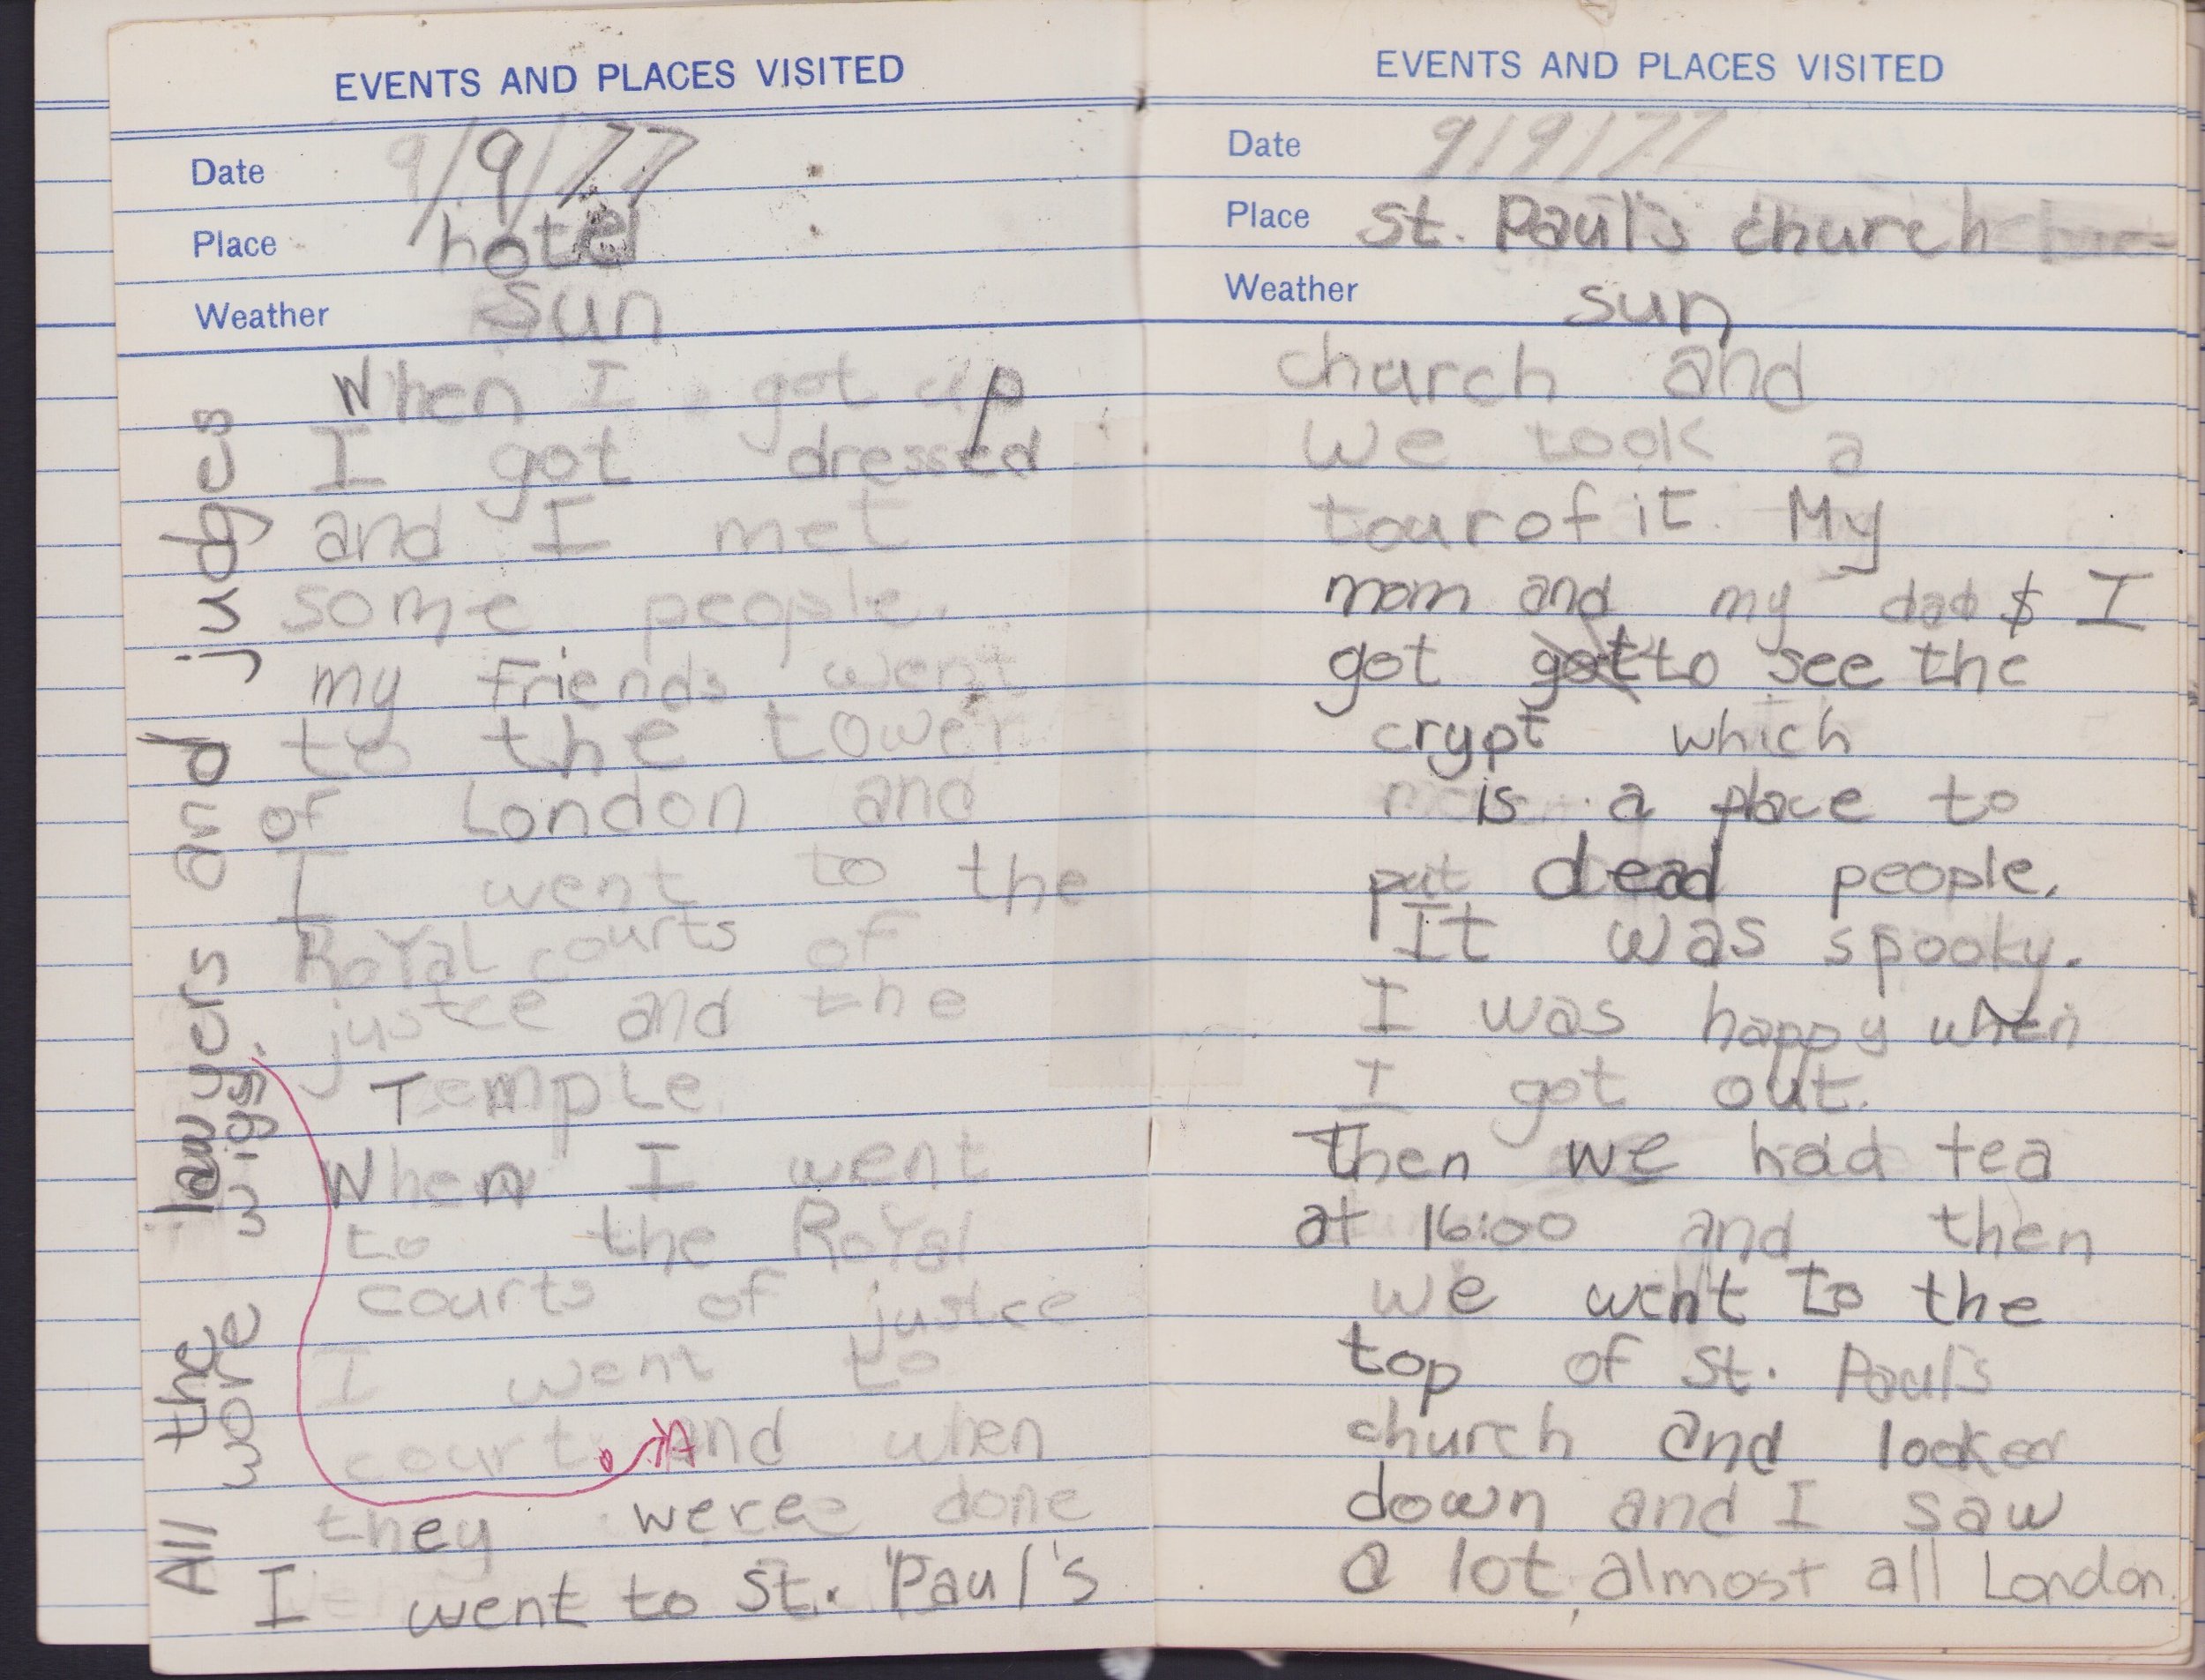 EVENTS AND PLACES VISITED
Date 9/9/77
Place hotel
Weather sun
When I got up
I got dressed
and I met
some people.
my friends went
to the tower
of London and
I went to the
RoYal courts of
justce and the
TempLe
When I went
to the RoYal
courts of justce
I went to
court. And when
they were done
I went to St. Paul's
All the lawyers and judges
wore wigs.
EVENTS AND PLACES VISITED
Date 9/9/77
Place St. Paul's church
Weather sun
church and
we took a
tour of it. My
mom and my dad $ I
got got to see the
crypt which
is a place to
put dead people.
It was spooky.
I was happy when
I got out.
Then we had tea
at 16:00 and then
we went to the
top of St. Paul's
church and looked
down and I saw
a lot, almost all London.